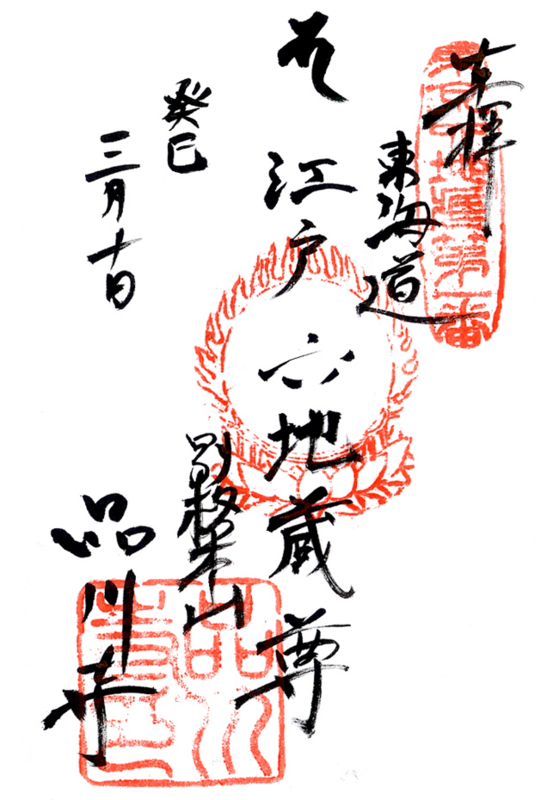 奉拝
地蔵第一番
東海道
江戸六地蔵尊
別格本山
癸巳
三月十日
品川寺